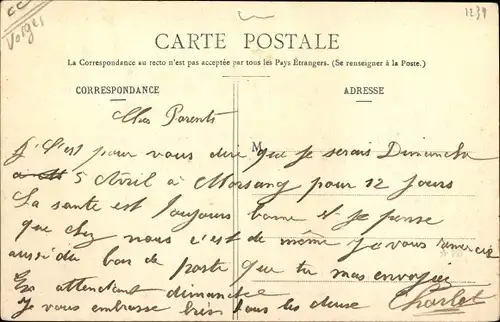 CC
Vosges
1234
CARTE POSTALE
La Correspondance au recto n'est pas acceptée par tous les Pays Étrangers. (Se renseigner à la Poste.)
CORRESPONDANCE
ADRESSE
M
Chers Parents
C'est pour vous dire que je serais Dimanche
5 Avril à Morsang pour 12 jours
La santé est toujours bonne et je pense
que chez nous c'est de même je vous remercie
aussi du bon de poste que tu mas envoyé
En attendant dimanche
Je vous embrasse bien tous les deux Charlot